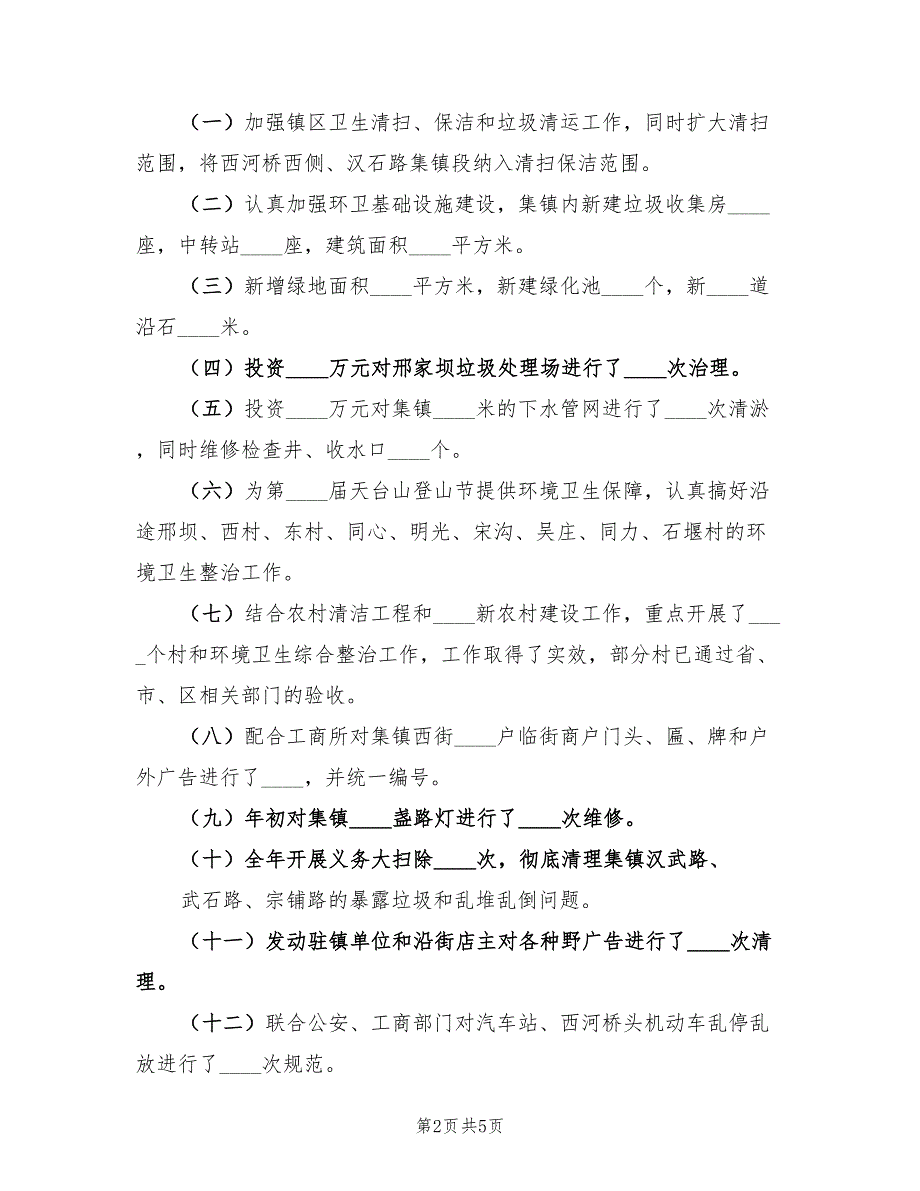 （一）加强镇区卫生清扫、保洁和垃圾清运工作，同时扩大清扫
范围，将西河桥西侧、汉石路集镇段纳入清扫保洁范围。
（二）认真加强环卫基础设施建设，集镇内新建垃圾收集房____
座，中转站____座，建筑面积____平方米。
（三）新增绿地面积____平方米，新建绿化池____个，新____道
沿石____米。
（四）投资____万元对邢家坝垃圾处理场进行了____次治理。
（五）投资____万元对集镇____米的下水管网进行了____次清淤
，同时维修检查井、收水口____个。
（六）为第____届天台山登山节提供环境卫生保障，认真搞好沿
途邢坝、西村、东村、同心、明光、宋沟、吴庄、同力、石堰村的环
境卫生整治工作。
（七）结合农村清洁工程和____新农村建设工作，重点开展了___
_个村和环境卫生综合整治工作，工作取得了实效，部分村已通过省、
市、区相关部门的验收。
（八）配合工商所对集镇西街____户临街商户门头、匾、牌和户
外广告进行了____，并统一编号。
（九）年初对集镇____盏路灯进行了____次维修。
（十）全年开展义务大扫除____次，彻底清理集镇汉武路、
武石路、宗铺路的暴露垃圾和乱堆乱倒问题。
（十一）发动驻镇单位和沿街店主对各种野广告进行了____次清
理。
（十二）联合公安、工商部门对汽车站、西河桥头机动车乱停乱
放进行了____次规范。
第2页共5页